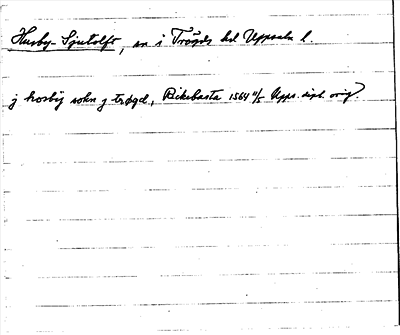 Husby-Sjutolft, sn i Trögds hd Uppsala l.
j hosby sokn j trøgd, Biskobasta 1564 11/5 Upps. dipl. orig.